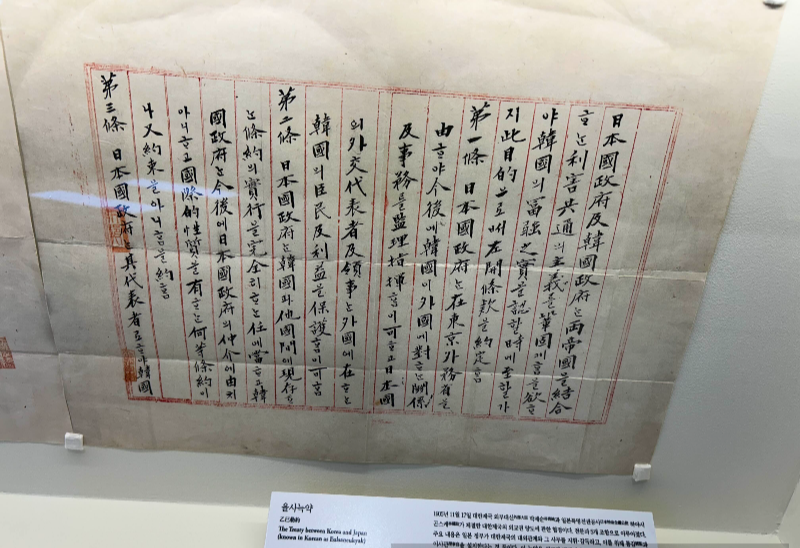 日本國政府及韓國政府と兩帝國을結合
하と利害共通의主義를鞏固케흠을欲하
야韓國의富强之實을認할時에至할가
지此目的으로써左開條款을約定흠
第一條 日本國政府と在東京外務省을
由하야今後에韓國이外國에對하と關係
及事務를監理指揮흠이可하고日本國
의外交代表者及領事と外國에在하と
韓國의臣民及利益을保護흠이可흠
第二條 日本國政府と韓國과他國間에現存하
と條約의實行을完全히하と任에當하고韓
國政府と今後에日本國政府의仲介에由치
아니하고國際的性質을有하と何等條約이
나又約束을아니흠을約흠
第三條 日本國政府と其代表者로하야韓國
을사늑약
乙巳勒約
The Treaty between Korea and Japan
(known in Korean as Eulsneukyak)
1905년 11월 17일 대한제국 외부대신 박제순과 일본특명전권공사 하야시
곤스케가 체결한 대한제국의 외교권 양도에 관한 협정이다. 전문과 5개 조항으로 이루어졌다.
주요 내용은 일본 정부가 대한제국의 대외관계와 그 사무를 지휘·감독하고, 이를 위해 통감과